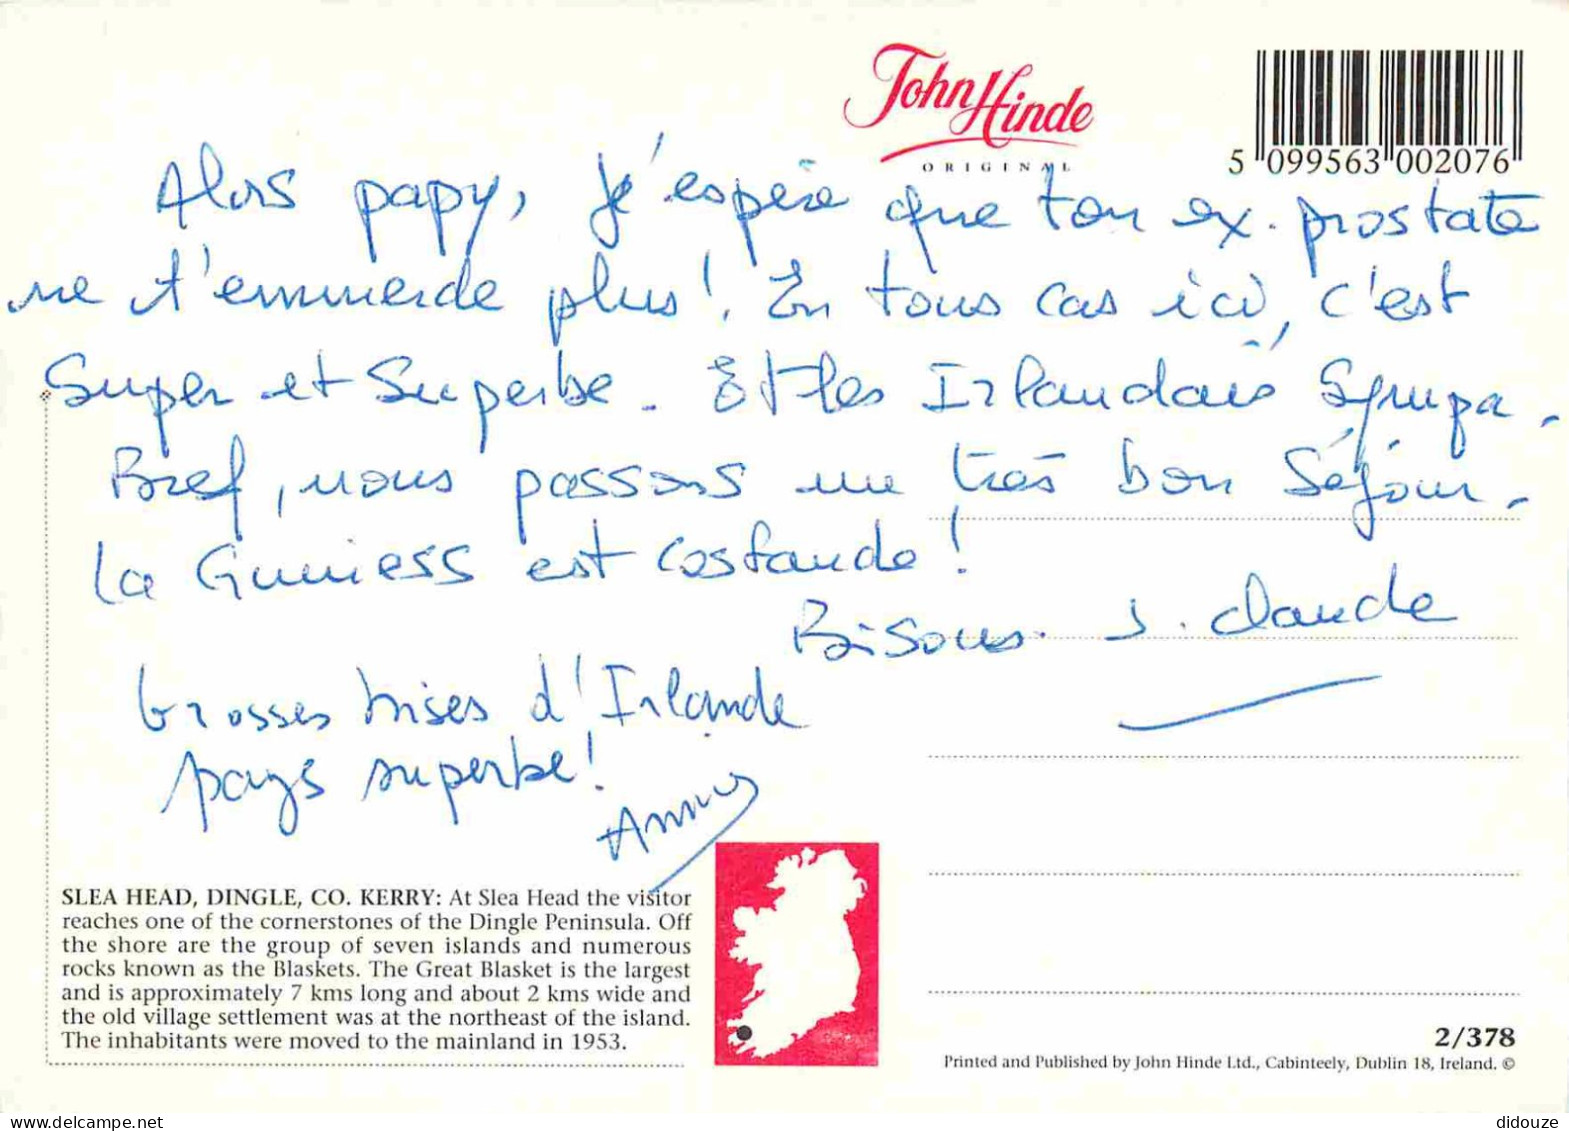 John Hinde
ORIGINAL
5 099563 002076
Alors papy, j'espère que ton ex. prostate
ne t'emmerde plus! En tous cas ici, c'est
Super et Superbe. Et les Irlandais, Sympa.
Bref, nous passons un très bon Séjour.
La Guiness est costaude!
Bisous. J. Claude
Grosses bises d'Irlande
pays superbe!
SLEA HEAD, DINGLE, CO. KERRY: At Slea Head the visitor
reaches one of the cornerstones of the Dingle Peninsula. Off
the shore are the group of seven islands and numerous
rocks known as the Blaskets. The Great Blasket is the largest
and is approximately 7 kms long and about 2 kms wide and
the old village settlement was at the northeast of the island.
The inhabitants were moved to the mainland in 1953.
2/378
Printed and Published by John Hinde Ltd., Cabinteely, Dublin 18, Ireland. ©
delcampe.net
didouze